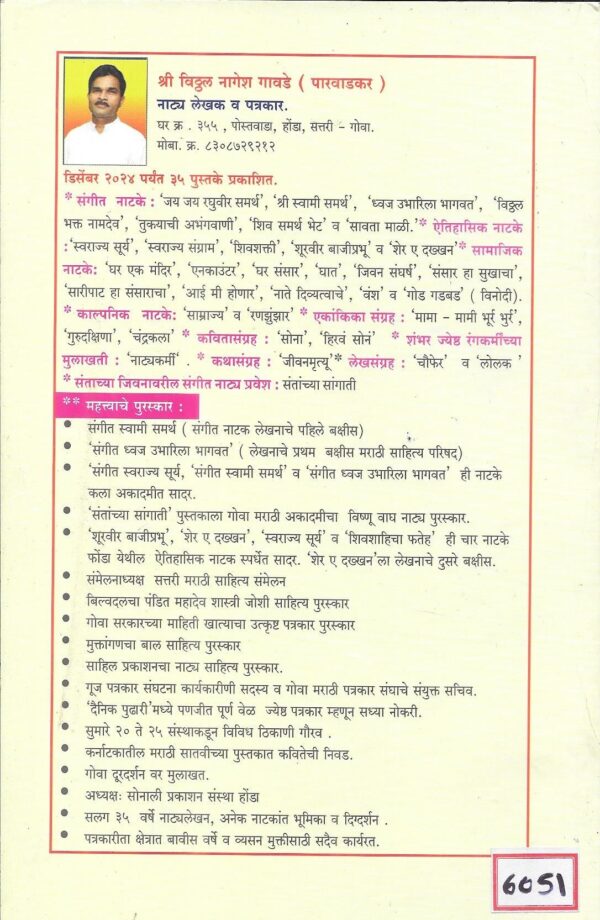 श्री विठ्ठल नागेश गावडे ( पारवाडकर )
नाट्य लेखक व पत्रकार.
घर क्र . ३५५ , पोस्तवाडा, होंडा, सत्तरी – गोवा.
मोबा. क्र. ८३०८७२९२१२
डिर्सेबर २०२४ पर्यंत ३५ पुस्तके प्रकाशित.
* संगीत नाटके : ‘जय जय रघुवीर समर्थ’, ‘श्री स्वामी समर्थ’, ‘ध्वज उभारिला भागवत’, ‘विठ्ठल
भक्त नामदेव’, ‘तुकयाची अभंगवाणी’, ‘शिव समर्थ भेट’ व ‘सावता माळी.’* ऐतिहासिक नाटके
:‘स्वराज्य सूर्य’, ‘स्वराज्य संग्राम’, ‘शिवशक्ती’, ‘शूरवीर बाजीप्रभू’ व ‘शेर ए दख्खन’* सामाजिक
नाटके: ‘घर एक मंदिर’, ‘एनकाउंटर’, ‘घर संसार’, ‘घात’, ‘जिवन संघर्ष’, ‘संसार हा सुखाचा’,
‘सारीपाट हा संसाराचा’, ‘आई मी होणार’, ‘नाते दिव्यत्वाचे’, ‘वंश’ व ‘गोड गडबड’ ( विनोदी).
* काल्पनिक नाटके: ‘साम्राज्य’ व ‘रणझुंझार’ * एकांकिका संग्रह : ‘मामा – मामी भूर्र भुर्र’,
‘गुरुदक्षिणा’, ‘चंद्रकला’ * कवितासंग्रह : ‘सोना’, ‘हिरवं सोनं’ * शंभर ज्येष्ठ रंगकर्मींच्या
मुलाखती : ‘नाट्यकर्मी’ . * कथासंग्रह : ‘जीवनमृत्यू’* लेखसंग्रह : ‘चौफेर’ व ‘लोलक ’
* संताच्या जिवनावरील संगीत नाट्य प्रवेश : संतांच्या सांगाती
** महत्त्वाचे पुरस्कार :
• संगीत स्वामी समर्थ ( संगीत नाटक लेखनाचे पहिले बक्षीस)
• ‘संगीत ध्वज उभारिला भागवत’ ( लेखनाचे प्रथम बक्षीस मराठी साहित्य परिषद)
• ‘संगीत स्वराज्य सूर्य, ‘संगीत स्वामी समर्थ’ व ‘संगीत ध्वज उभारिला भागवत’ ही नाटके
कला अकादमीत सादर.
• ‘संतांच्या सांगाती’ पुस्तकाला गोवा मराठी अकादमीचा विष्णू वाघ नाट्य पुरस्कार.
• ‘शूरवीर बाजीप्रभू’, ‘शेर ए दख्खन’, ‘स्वराज्य सूर्य’ व ‘शिवशाहिचा फतेह’ ही चार नाटके
फोंडा येथील ऐतिहासिक नाटक स्पर्धेत सादर. ‘शेर ए दख्खन’ला लेखनाचे दुसरे बक्षीस.
• संमेलनाध्यक्ष सत्तरी मराठी साहित्य संमेलन
• बिल्वदलचा पंडित महादेव शास्त्री जोशी साहित्य पुरस्कार
• गोवा सरकारच्या माहिती खात्याचा उत्कृष्ट पत्रकार पुरस्कार
• मुक्तांगणचा बाल साहित्य पुरस्कार
• साहिल प्रकाशनचा नाट्य साहित्य पुरस्कार.
• गूज पत्रकार संघटना कार्यकारीणी सदस्य व गोवा मराठी पत्रकार संघाचे संयुक्त सचिव.
• ‘दैनिक पुढारी’मध्ये पणजीत पूर्ण वेळ ज्येष्ठ पत्रकार म्हणून सध्या नोकरी.
• सुमारे २० ते २५ संस्थाकडून विविध ठिकाणी गौरव .
• कर्नाटकातील मराठी सातवीच्या पुस्तकात कवितेची निवड.
• गोवा दूरदर्शन वर मुलाखत.
• अध्यक्षः सोनाली प्रकाशन संस्था होंडा
• सलग ३५ वर्षे नाट्यलेखन, अनेक नाटकांत भूमिका व दिग्दर्शन .
• पत्रकारीता क्षेत्रात बावीस वर्षे व व्यसन मुक्तीसाठी सदैव कार्यरत.
6051